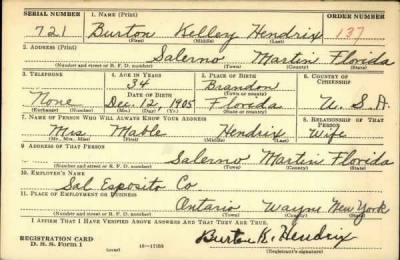 SERIAL NUMBER 1. NAME (Print) ORDER NUMBER
721 Burton Kelley Hendrix 137
(First) (Middle) (Last)
2. ADDRESS (Print)
Salerno Martin Florida
(Number and street or R. F. D. number) (Town) (County) (State)
3. TELEPHONE 4. AGE IN YEARS 5. PLACE OF BIRTH 6. COUNTRY OF CITIZENSHIP
34 Brandon
DATE OF BIRTH (Town or county)
None Dec. 12, 1905 Florida U. S. A.
(Exchange) (Number) (Mo.) (Day) (Yr.) (State or country)
7. NAME OF PERSON WHO WILL ALWAYS KNOW YOUR ADDRESS 8. RELATIONSHIP OF THAT PERSON
Mrs Mable Hendrix Wife
(Mr., Mrs., Miss) (First) (Middle) (Last)
9. ADDRESS OF THAT PERSON
Salerno Martin Florida
(Number and street or R. F. D. number) (Town) (County) (State)
10. EMPLOYER'S NAME
Sal Esposito Co
11. PLACE OF EMPLOYMENT OR BUSINESS
Ontario Wayne New York
(Number and street or R. F. D. number) (Town) (County) (State)
I AFFIRM THAT I HAVE VERIFIED ABOVE ANSWERS AND THAT THEY ARE TRUE.
REGISTRATION CARD
D. S. S. Form 1
Burton K. Hendrix
(Registrant's signature)